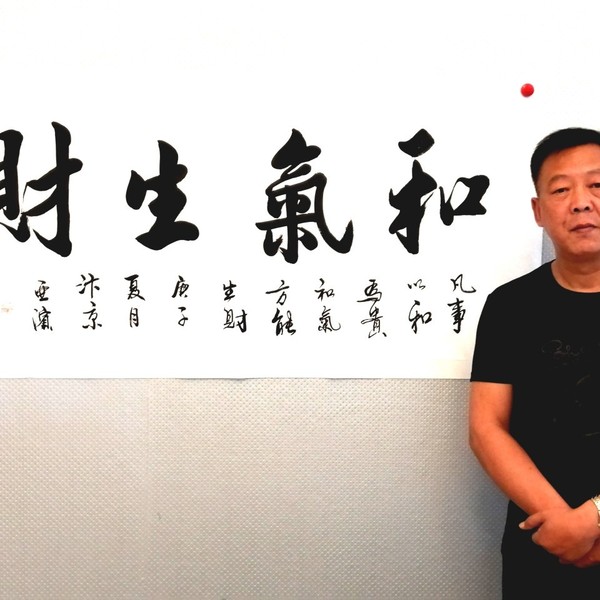 和氣生財
凡事
以和
為貴
和氣
方能
生財
庚子
夏月
汴京
亞濱